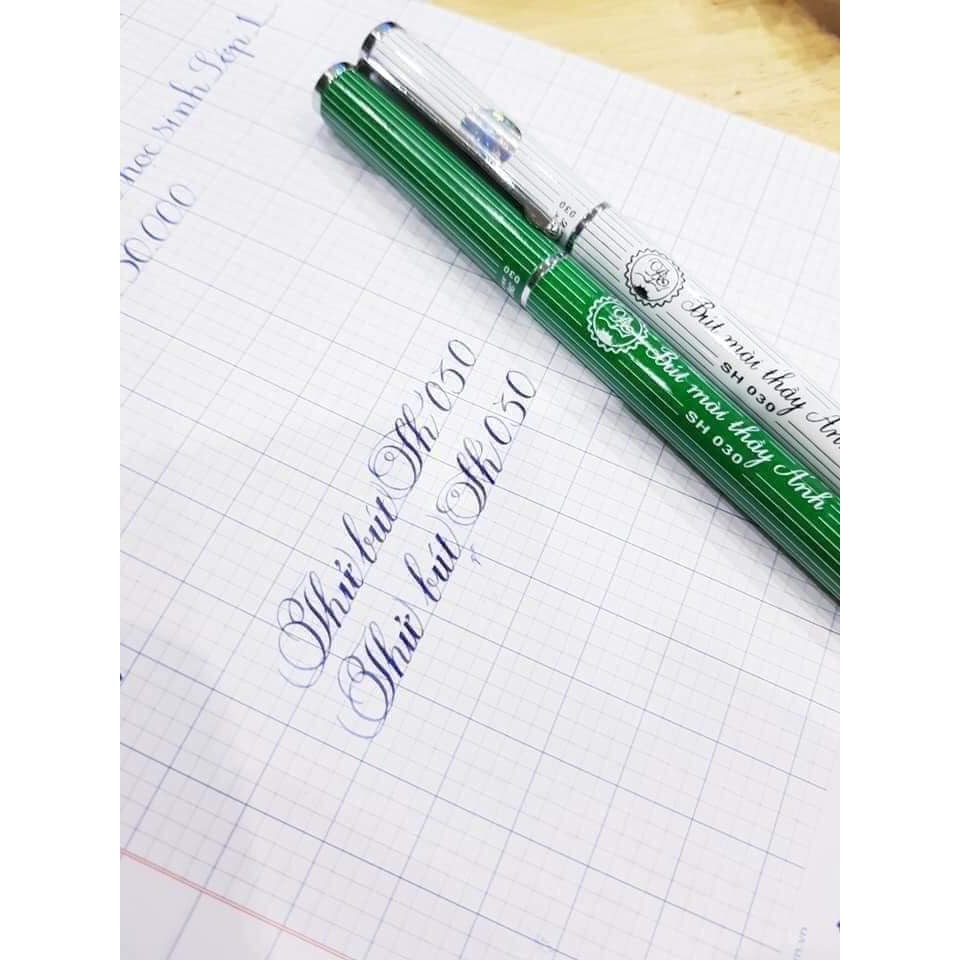 học sinh Lớp 1
50.000
Thử bút Sh 030
Thử bút Sh 030
030
Bút mài thầy Ánh
SH 030
030
Bút mài thầy Ánh
SH 030